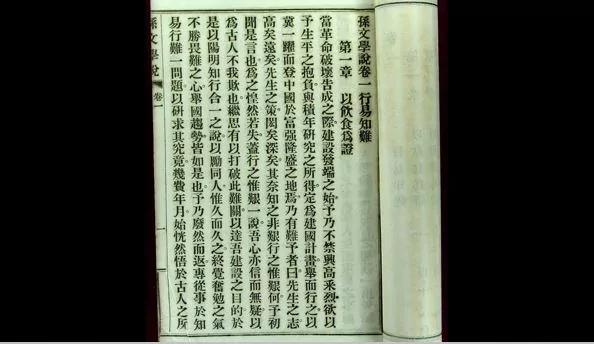 孫文學說卷一行易知難
第一章　以飲食爲證
當革命破壞告成之際建設發端之始予乃不禁興高釆烈欲以
予生平之抱負與積年研究之所得定爲建國計畫舉而行之以
冀一躍而登中國於富强隆盛之地焉乃有難予者曰先生之志
高矣遠矣先生之策閎矣深矣其奈知之非艱行之惟艱何予初
聞是言也爲之惶然若失蓋行之惟艱一說吾心亦信而無疑以
爲古人不我欺也繼思有以打破此難關以達吾建設之目的於
是以陽明知行合一之說以勵同人惟久而久之終覺奮勉之氣
不勝畏難之心舉國趨勢皆如是也予乃廢然而返專從事於知
易行難一問題以研求其究竟幾費年月始恍然悟於古人之所
孫文學說　卷一　一